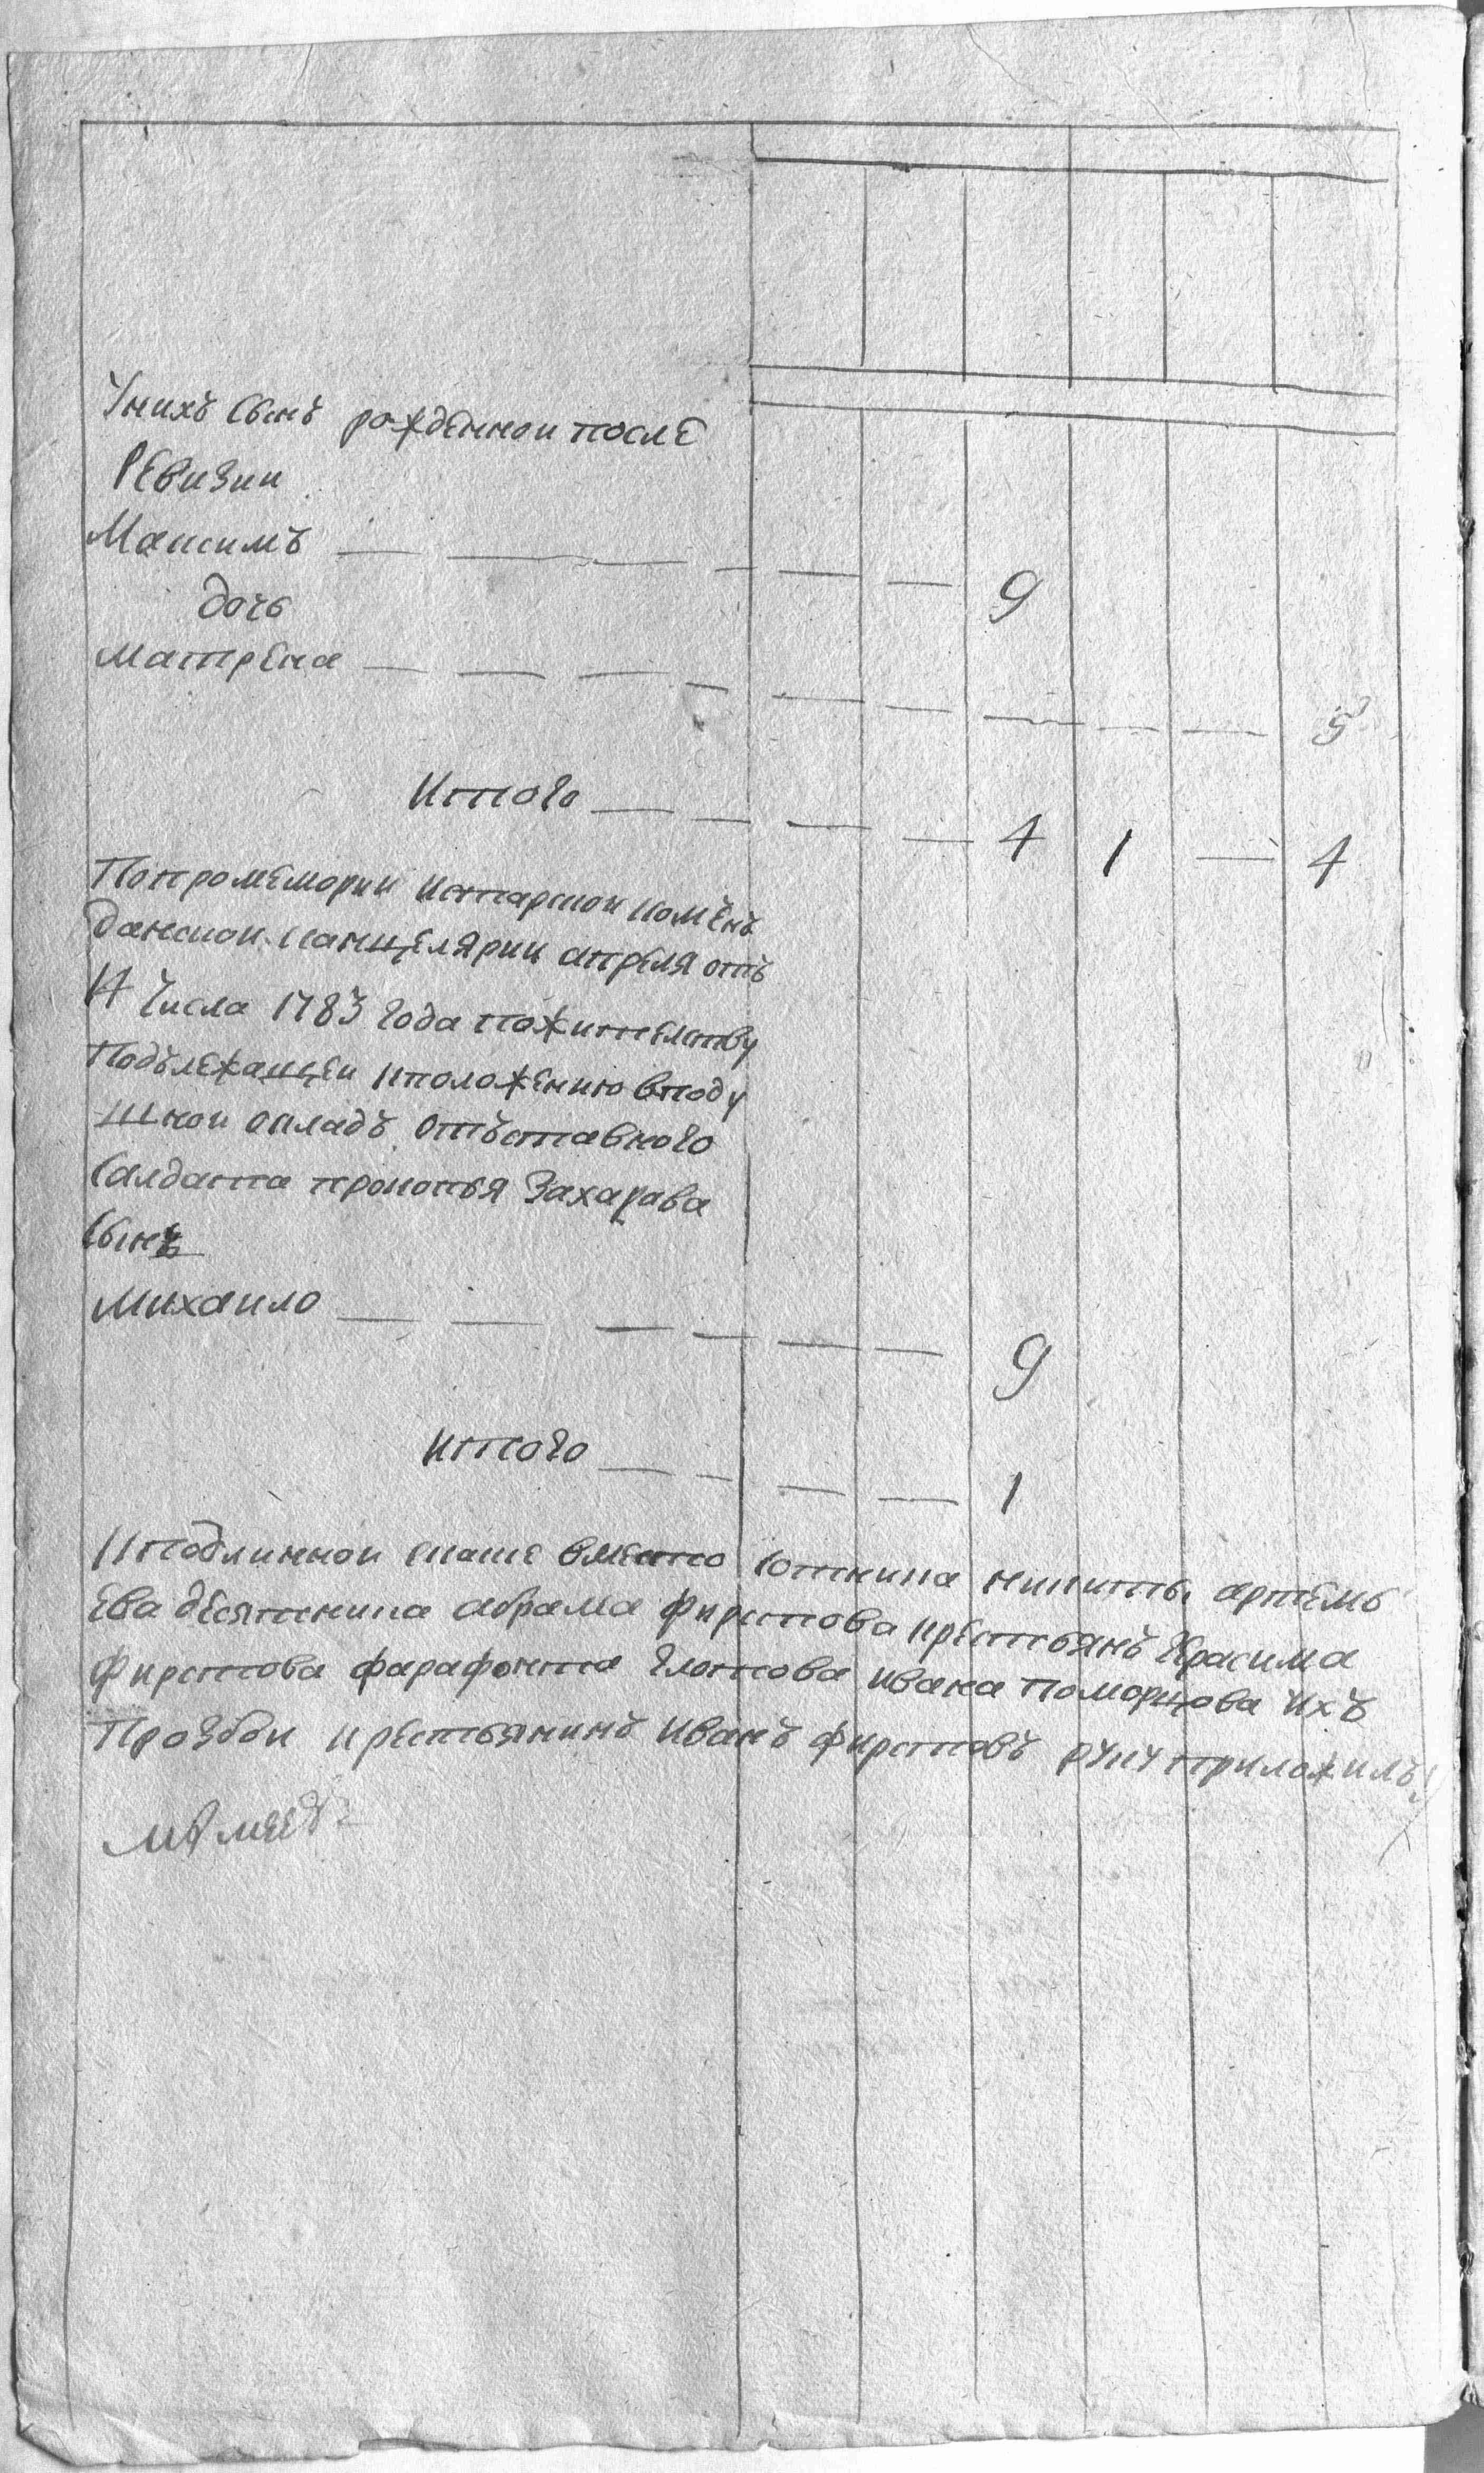 Унихъ сынъ рожденнои после
Ревизии
Максимъ — — — — — — 9
дочь
матрена — — — — — — — — — 5
Итого — — — — 4 1 — 4
Попромемории иктарскои комѣнъ
данскои канцелярии апреля отъ
14 числа 1783 года пожителству
Подълежащеи кположению вподу
шнои окладъ отъставного
Салдата прокопья Захарава
сынъ
михаило — — — — — — 9
итого — — — — 1
Кподлиннои скаске вместо сотника никиты артемь
ева десятника абрама фирсова крестьянъ герасима
фирсова фарафонта глотова ивана поморцова ихъ
Прозбои крестьянинъ иванъ фирсовъ руку приложилъ